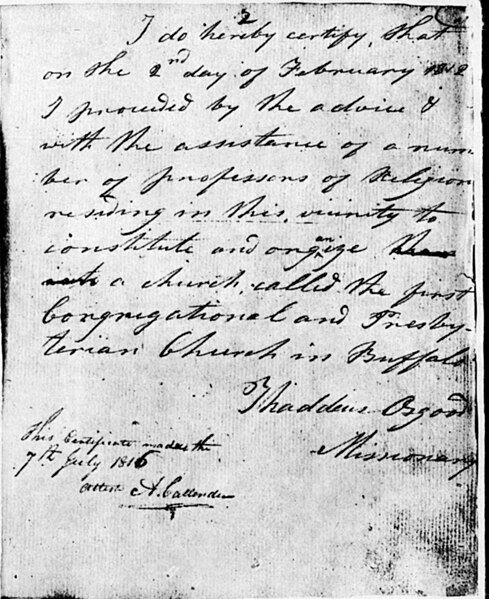 2
I do hereby certify, that
on the 2nd day of February 1812
I proceded by the advice &
with the assistance of a num
ber of professors of Religion
residing in this vicinity to
constitute and organize
a church, called the first
Congregational and Presby-
terian Church in Buffalo
Thaddeus Osgood
Missionary
This Certificate made the
7th July 1815
Attest A. Callender